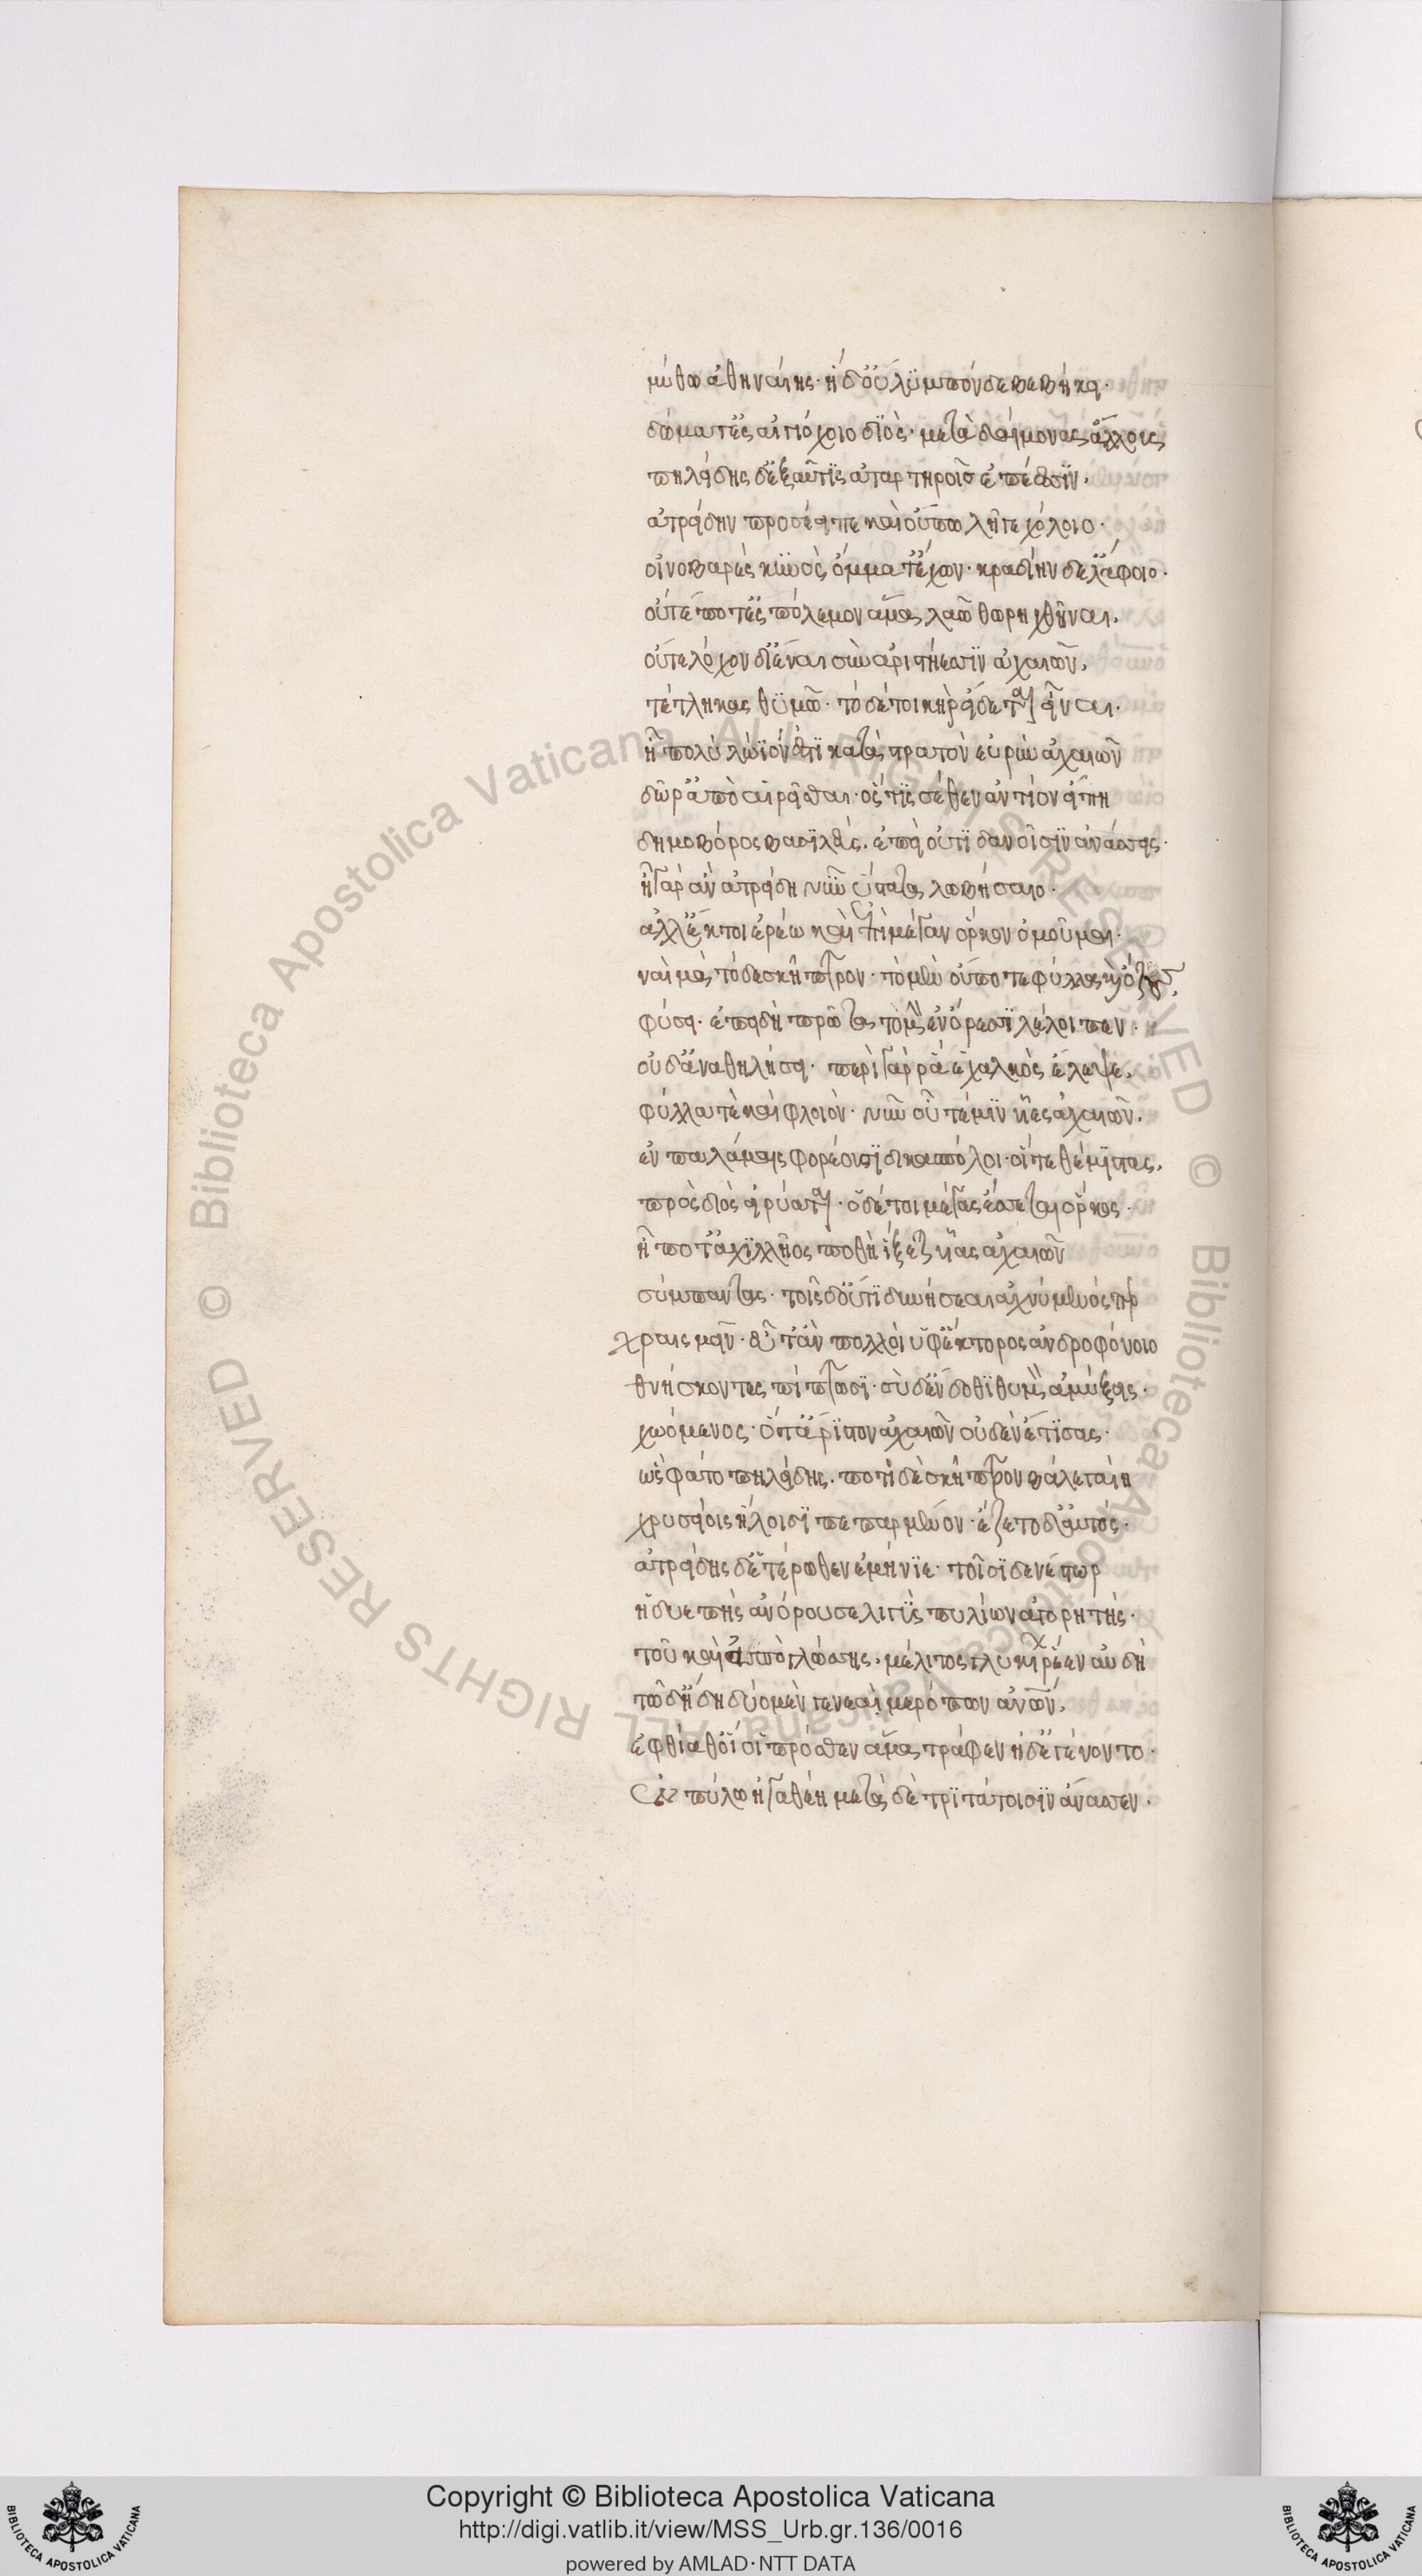 μύθω ἀθηναίης· ἡ δ' οὔλϋμπόνδε βεβήκει·
δώματ' ἐς αἰγιόχοιο διὸς· μετὰ δαίμονας ἄλλους
πηλείδης δ' ἐξαῦτις ἀταρτηροῖσ ἐπέεσσϊν.
ἀτρείδην προσέειπε καὶ οὔπω λῆγε χόλοιο·
οἰνοβαρὲς κϋνὸς ὄμματ' ἔχων· κραδίην δ' ἐλάφοιο·
οὔτέ ποτ' ἐς πόλεμον ἅμα λαῶ θωρηχθῆναι.
οὔτε λόχον δ' ἰέναι σὺν ἀριστήεσσϊν ἀχαιῶν,
τέτληκας θϋμῶ· τὸ δέ τοι κὴρ εἴδεται εἶναι·
ἦ πολὺ λώϊόν ἐστϊ κατὰ στρατὸν εὐρὺν ἀχαιῶν
δῶρ' ἀπὸ αἱρεῖσθαι· ὅς τϊς σέθεν ἀντίον εἴπη
δημοβόρος βασϊλεὺς. ἐπεὶ οὐτϊδανοῖσϊν ἀνάσσεις·
ἦ γὰρ ἂν ἀτρείδη νῦν ὕστατα λωβήσαιο·
ἀλλ' ἔκ τοι ἐρέω καὶ ἐπὶ μέγαν ὅρκον ὀμοῦμαι·
ναὶ μὰ τόδε σκῆπτρον· τὸ μὲν οὔποτε φύλλα καὶ ὄζους
φύσει· ἐπειδὴ πρῶτα τομὴν ἐν ὄρεσσϊ λέλοιπεν·
οὐδ' ἀναθηλήσει· περὶ γάρ ῥά ἑ χαλκὸς ἔλεψε.
φύλλα τὲ καὶ φλοιὸν· νῦν αὖτέ μϊν υἷες ἀχαιῶν.
ἐν παλάμαις φορέουσϊ δικασπόλοι· οἵ τε θέμϊστας,
πρὸς διὸς εἰρύαται· ὁ δέ τοι μέγας ἔσσεται ὅρκος·
ἦ ποτ' ἀχϊλλῆος ποθὴ ἵξεται υἷας ἀχαιῶν
σύμπαντας· τοῖς δ' οὔτϊ δυνήσεαι ἀχνύμενός περ
χραισμεῖν· εὖτ' ἂν πολλοὶ ὑφ' ἕκτορος ἀνδροφόνοιο
θνήσκοντες πίπτωσϊ· σὺ δ' ἔνδοθϊ θυμὸν ἀμύξεις·
χωόμενος· ὅτ' ἄρϊστον ἀχαιῶν οὐδὲν ἔτϊσας·
ὣς φάτο πηλείδης. ποτὶ δὲ σκῆπτρον βάλε γαίη
χρυσείοις ἥλοισϊ πεπαρμένον· ἕζετο δ' αὐτός·
ἀτρείδης δ' ἑτέρωθεν ἐμήνϊε· τοῖσϊ δε νέστωρ
ἡδυεπὴς ἀνόρουσε λιγϋς πυλίων ἀγορητής·
τοῦ καὶ ἀπὸ γλώσσης. μέλιτος γλυκίων ῥέεν αὐδὴ
τῶ δ' ἤδη δύο μὲν γενεαὶ μερόπων ἀνθρώπων,
ἐφθίαθ' οἵ οἱ πρόσθεν ἅμα τράφεν ἠδ' ἐγένοντο·
Ἐν πύλω ἠγαθέη μετὰ δὲ τρϊτάτοισϊν ἄνασσεν·
Copyright © Biblioteca Apostolica Vaticana
http://digi.vatlib.it/view/MSS_Urb.gr.136/0016
powered by AMLAD·NTT DATA
BIBLIOTECA APOSTOLICA VATICANA
BIBLIOTECA APOSTOLICA VATICANA
© Biblioteca Apostolica Vaticana ALL RIGHTS RESERVED © Biblioteca Apostolica Vaticana ALL RIGHTS RESERVED